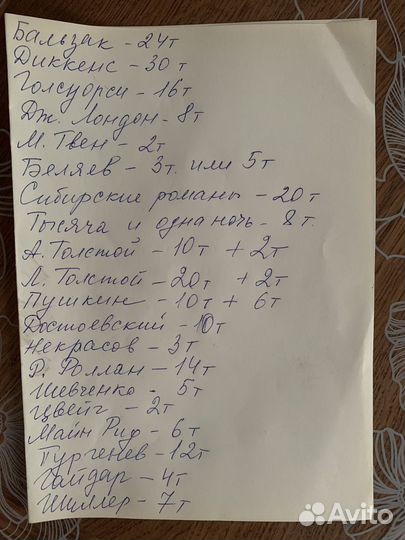 Бальзак - 24т
Диккенс - 30 т
Голсуорси - 16т
Дж. Лондон - 8т
М. Твен - 2т
Беляев - 3т. или 5т
Сибирские романы - 20т
Тысяча и одна ночь - 8 т.
А. Толстой - 10т + 2т
Л. Толстой - 20т + 2т
Пушкин - 10т + 6т
Достоевский - 10т
Некрасов - 3т
Р. Роллан - 14т
Шевченко - 5т
Цвейг - 2т
Майн Рид - 6т
Тургенев - 12т
Гайдар - 4т
Шиллер - 7т
Avito